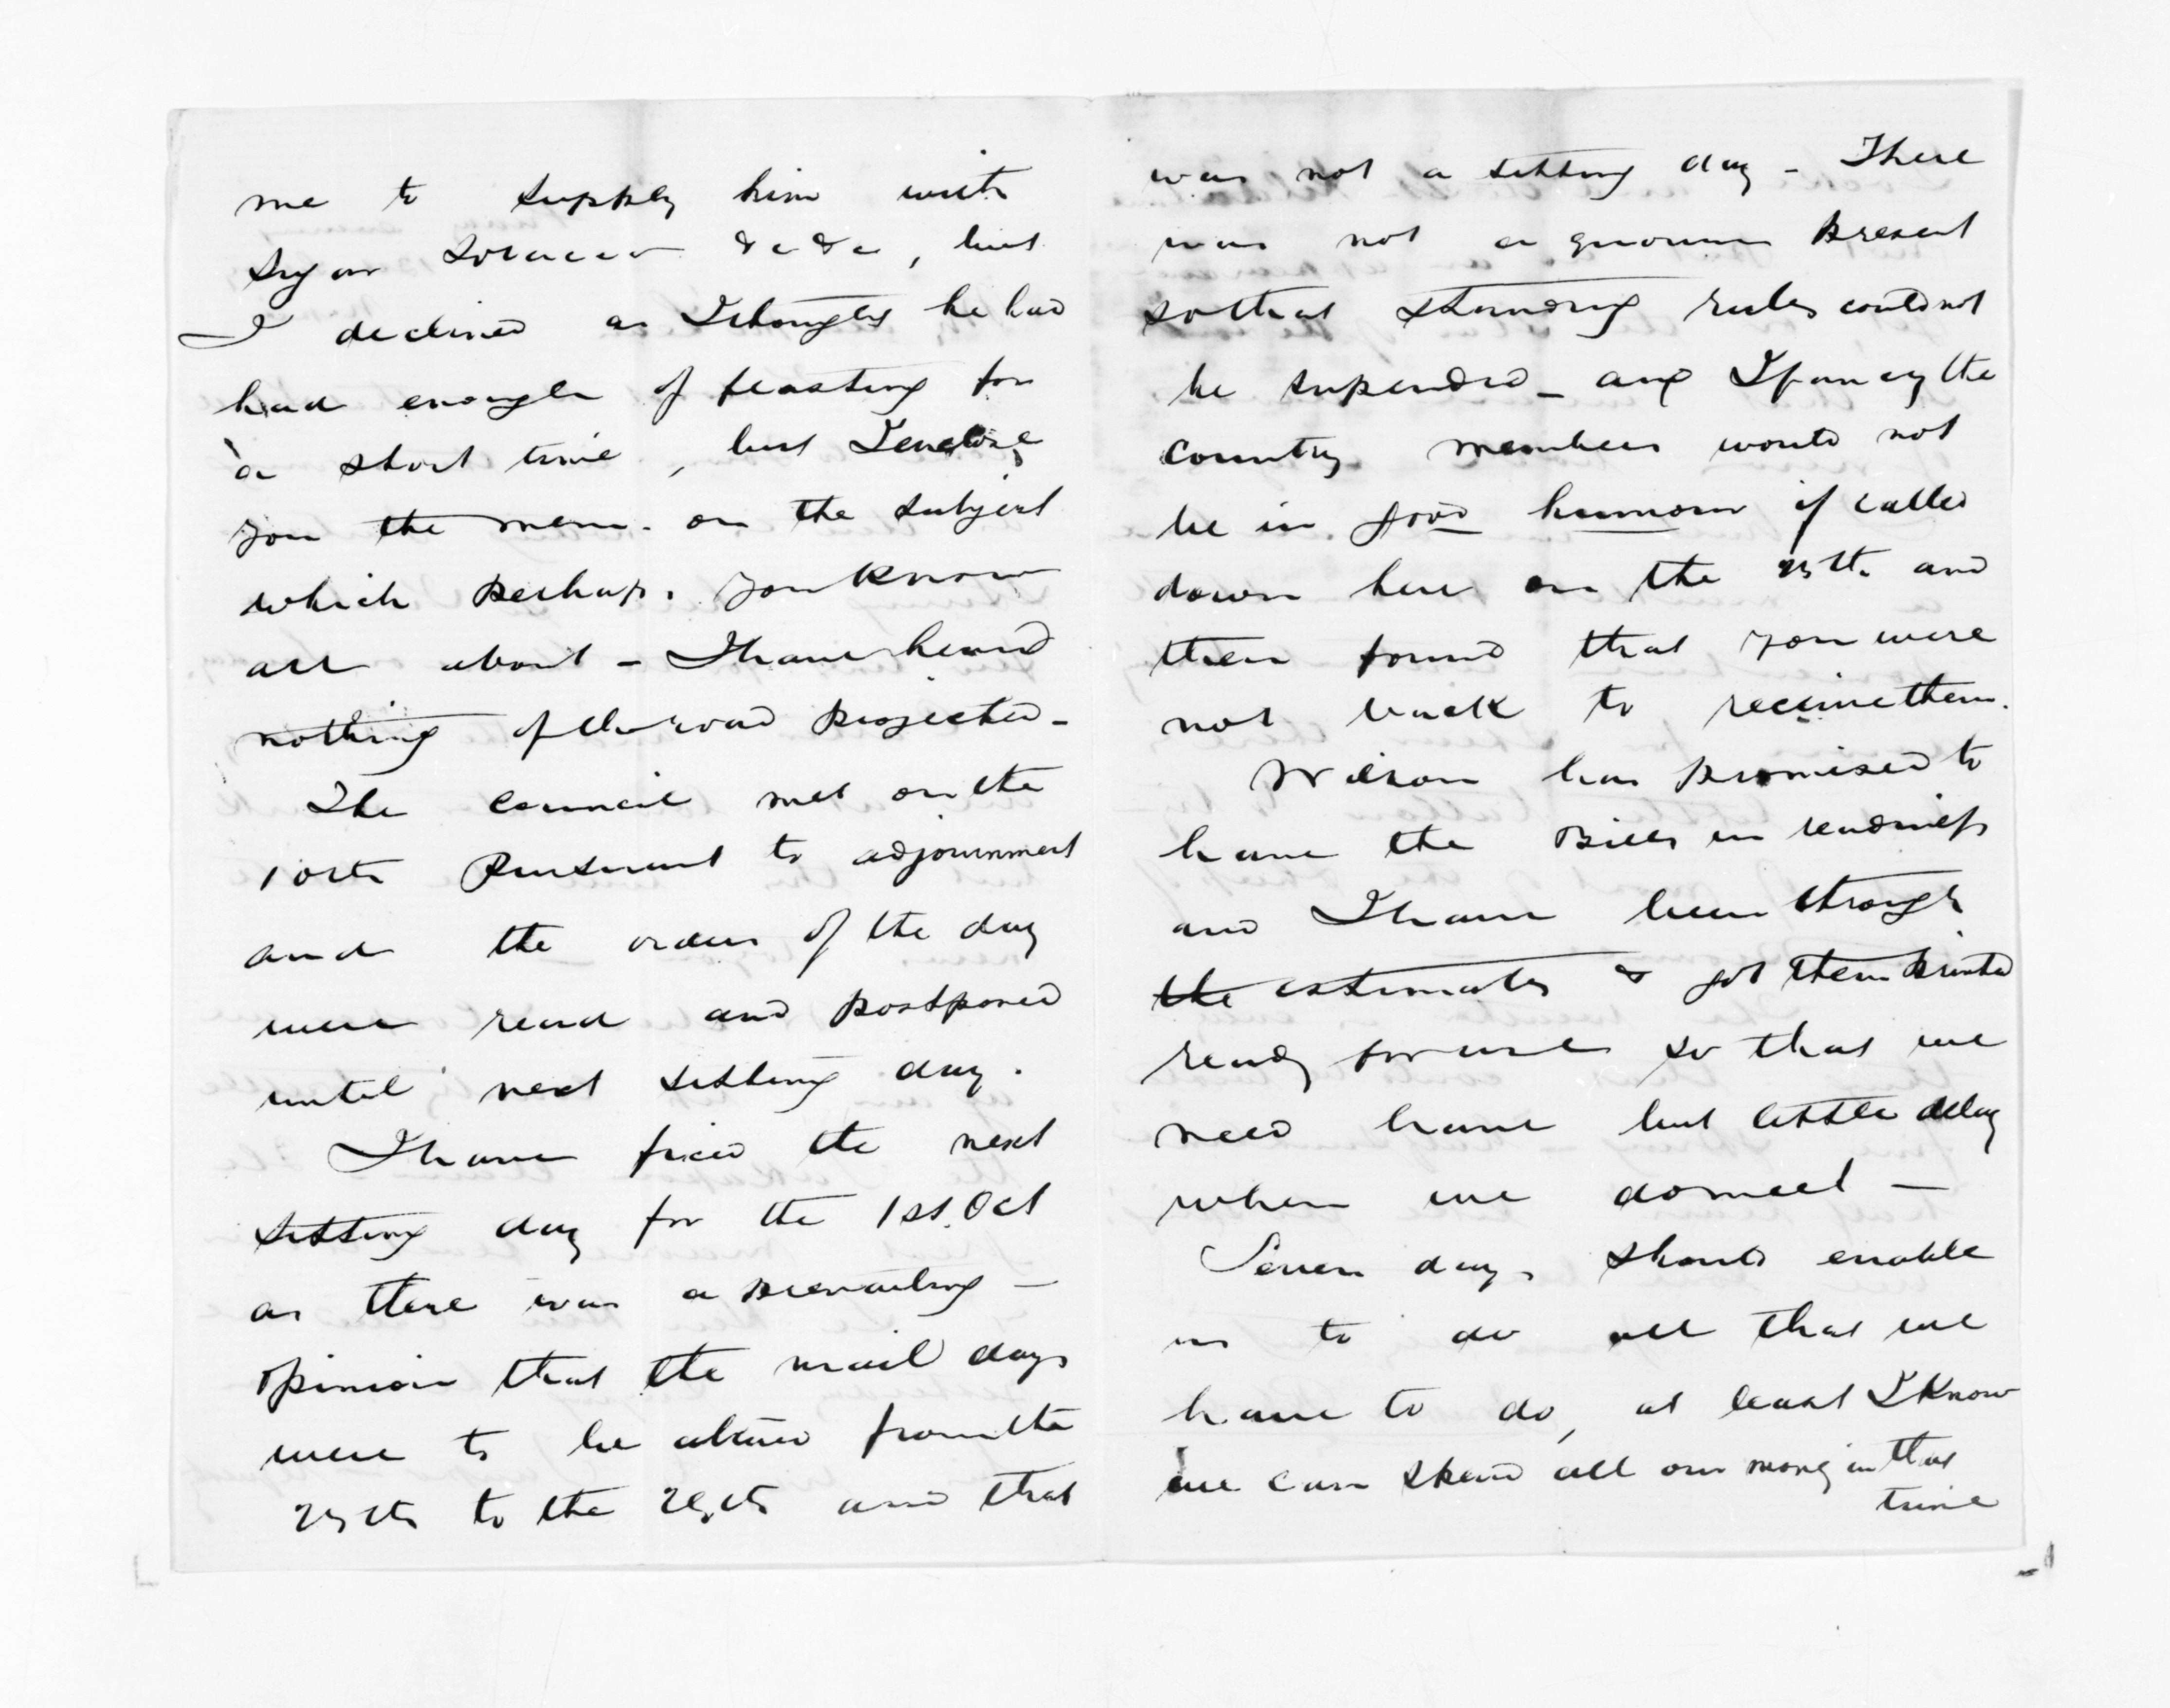 me to supply him with
sugar tobacco &c &c, but
I declined as I thought he had
had enough of feasting for
a short time, but I enclose
you the mem. on the subject
which perhaps you know
all about - I have heard
nothing of the road projected -
The Council met on the
10th pursuant to adjournment
and the orders of the day
were read and postponed
until next sitting day.
I have fixed the next
sitting day for the 1st. Oct
as there was a prevailing -
opinion that the mail days
were to be altered from the
25th to the and that
was not a sitting day - There
was not a quorum present
so that standing rules could not
be supended - and I fancy the
country members would not
be in good humour if called
down here on the 25th. and
then found that you were
not back to receive them.
Wilson has promised to
have the Bills in readiness
and I have been through
the estimates & got them printed
ready for use so that we
need have but little delay
when we do meet -
Seven days should enable
us to do all that we
have to do, at least I know
we can spend all our money in that
time